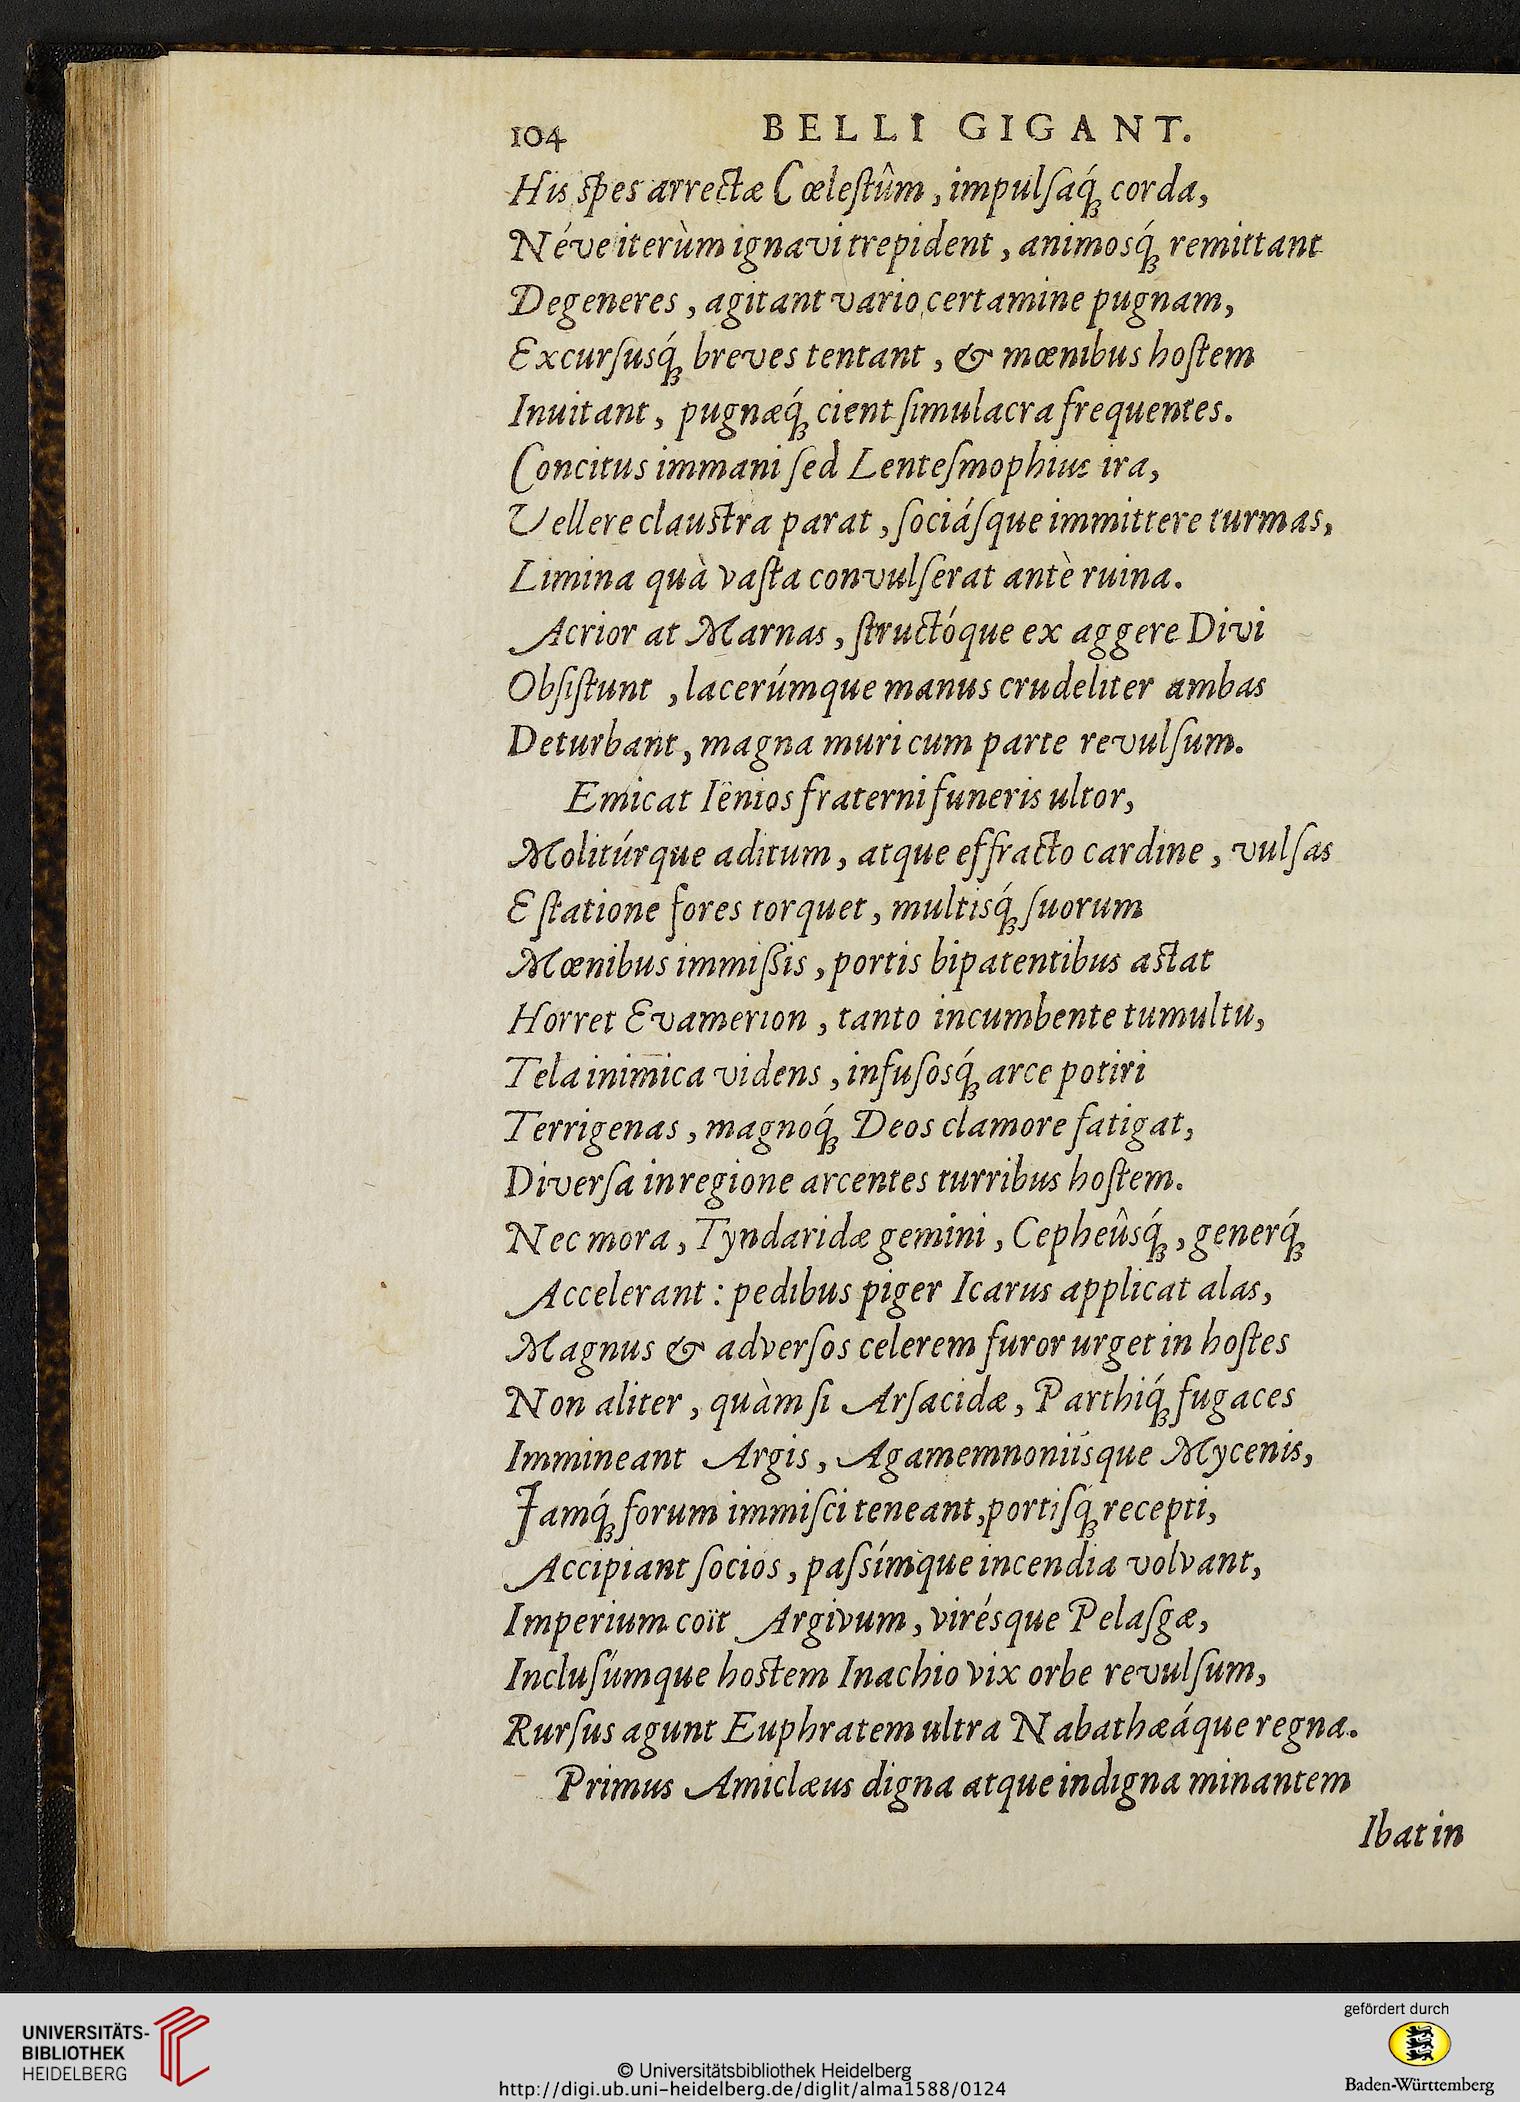 104 BELLI GIGANT.
His spes arrectæ Cœleſtûm, impulſaq́ꝫ corda,
Néve iterùm ignavi trepident, animosq́ꝫ remittant
Degeneres, agitant vario certamine pugnam,
Excurſusq́ꝫ breves tentant, & mœnibus hoſtem
Inuitant, pugnæq́ꝫ cient ſimulacra frequentes.
Concitus immani ſed Lenteſmophius ira,
Vellere clauſtra parat, ſociáſque immittere turmas,
Limina quà vaſta convulſerat antè ruina.
Acrior at Marnas, ſtructóque ex aggere Divi
Obſiſtunt, lacerúmque manus crudeliter ambas
Deturbant, magna muri cum parte revulſum.
Emicat Iënios fraterni funeris ultor,
Molitúrque aditum, atque effracto cardine, vulſas
E ſtatione fores torquet, multisq́ꝫ ſuorum
Mœnibus immiſsis, portis bipatentibus aſtat
Horret Evamerion, tanto incumbente tumultu,
Tela inimica videns, infuſosq́ꝫ arce potiri
Terrigenas, magnoq́ꝫ Deos clamore fatigat,
Diverſa in regione arcentes turribus hoſtem.
Nec mora, Tyndaridæ gemini, Cepheûsq́ꝫ, generq́ꝫ
Accelerant: pedibus piger Icarus applicat alas,
Magnus & adverſos celerem furor urget in hoſtes
Non aliter, quàm ſi Arſacidæ, Parthiq́ꝫ fugaces
Immineant Argis, Agamemnoniísque Mycenis,
Jamq́ꝫ forum immiſci teneant, portiſq́ꝫ recepti,
Accipiant ſocios, paſsímque incendia volvant,
Imperium coït Argivum, virésque Pelaſgæ,
Incluſúmque hoſtem Inachio vix orbe revulſum,
Rurſus agunt Euphratem ultra Nabathæáque regna.
Primus Amiclæus digna atque indigna minantem
Ibat in
UNIVERSITÄTS-
BIBLIOTHEK
HEIDELBERG
© Universitätsbibliothek Heidelberg
http://digi.ub.uni-heidelberg.de/diglit/alma1588/0124
gefördert durch
Baden-Württemberg